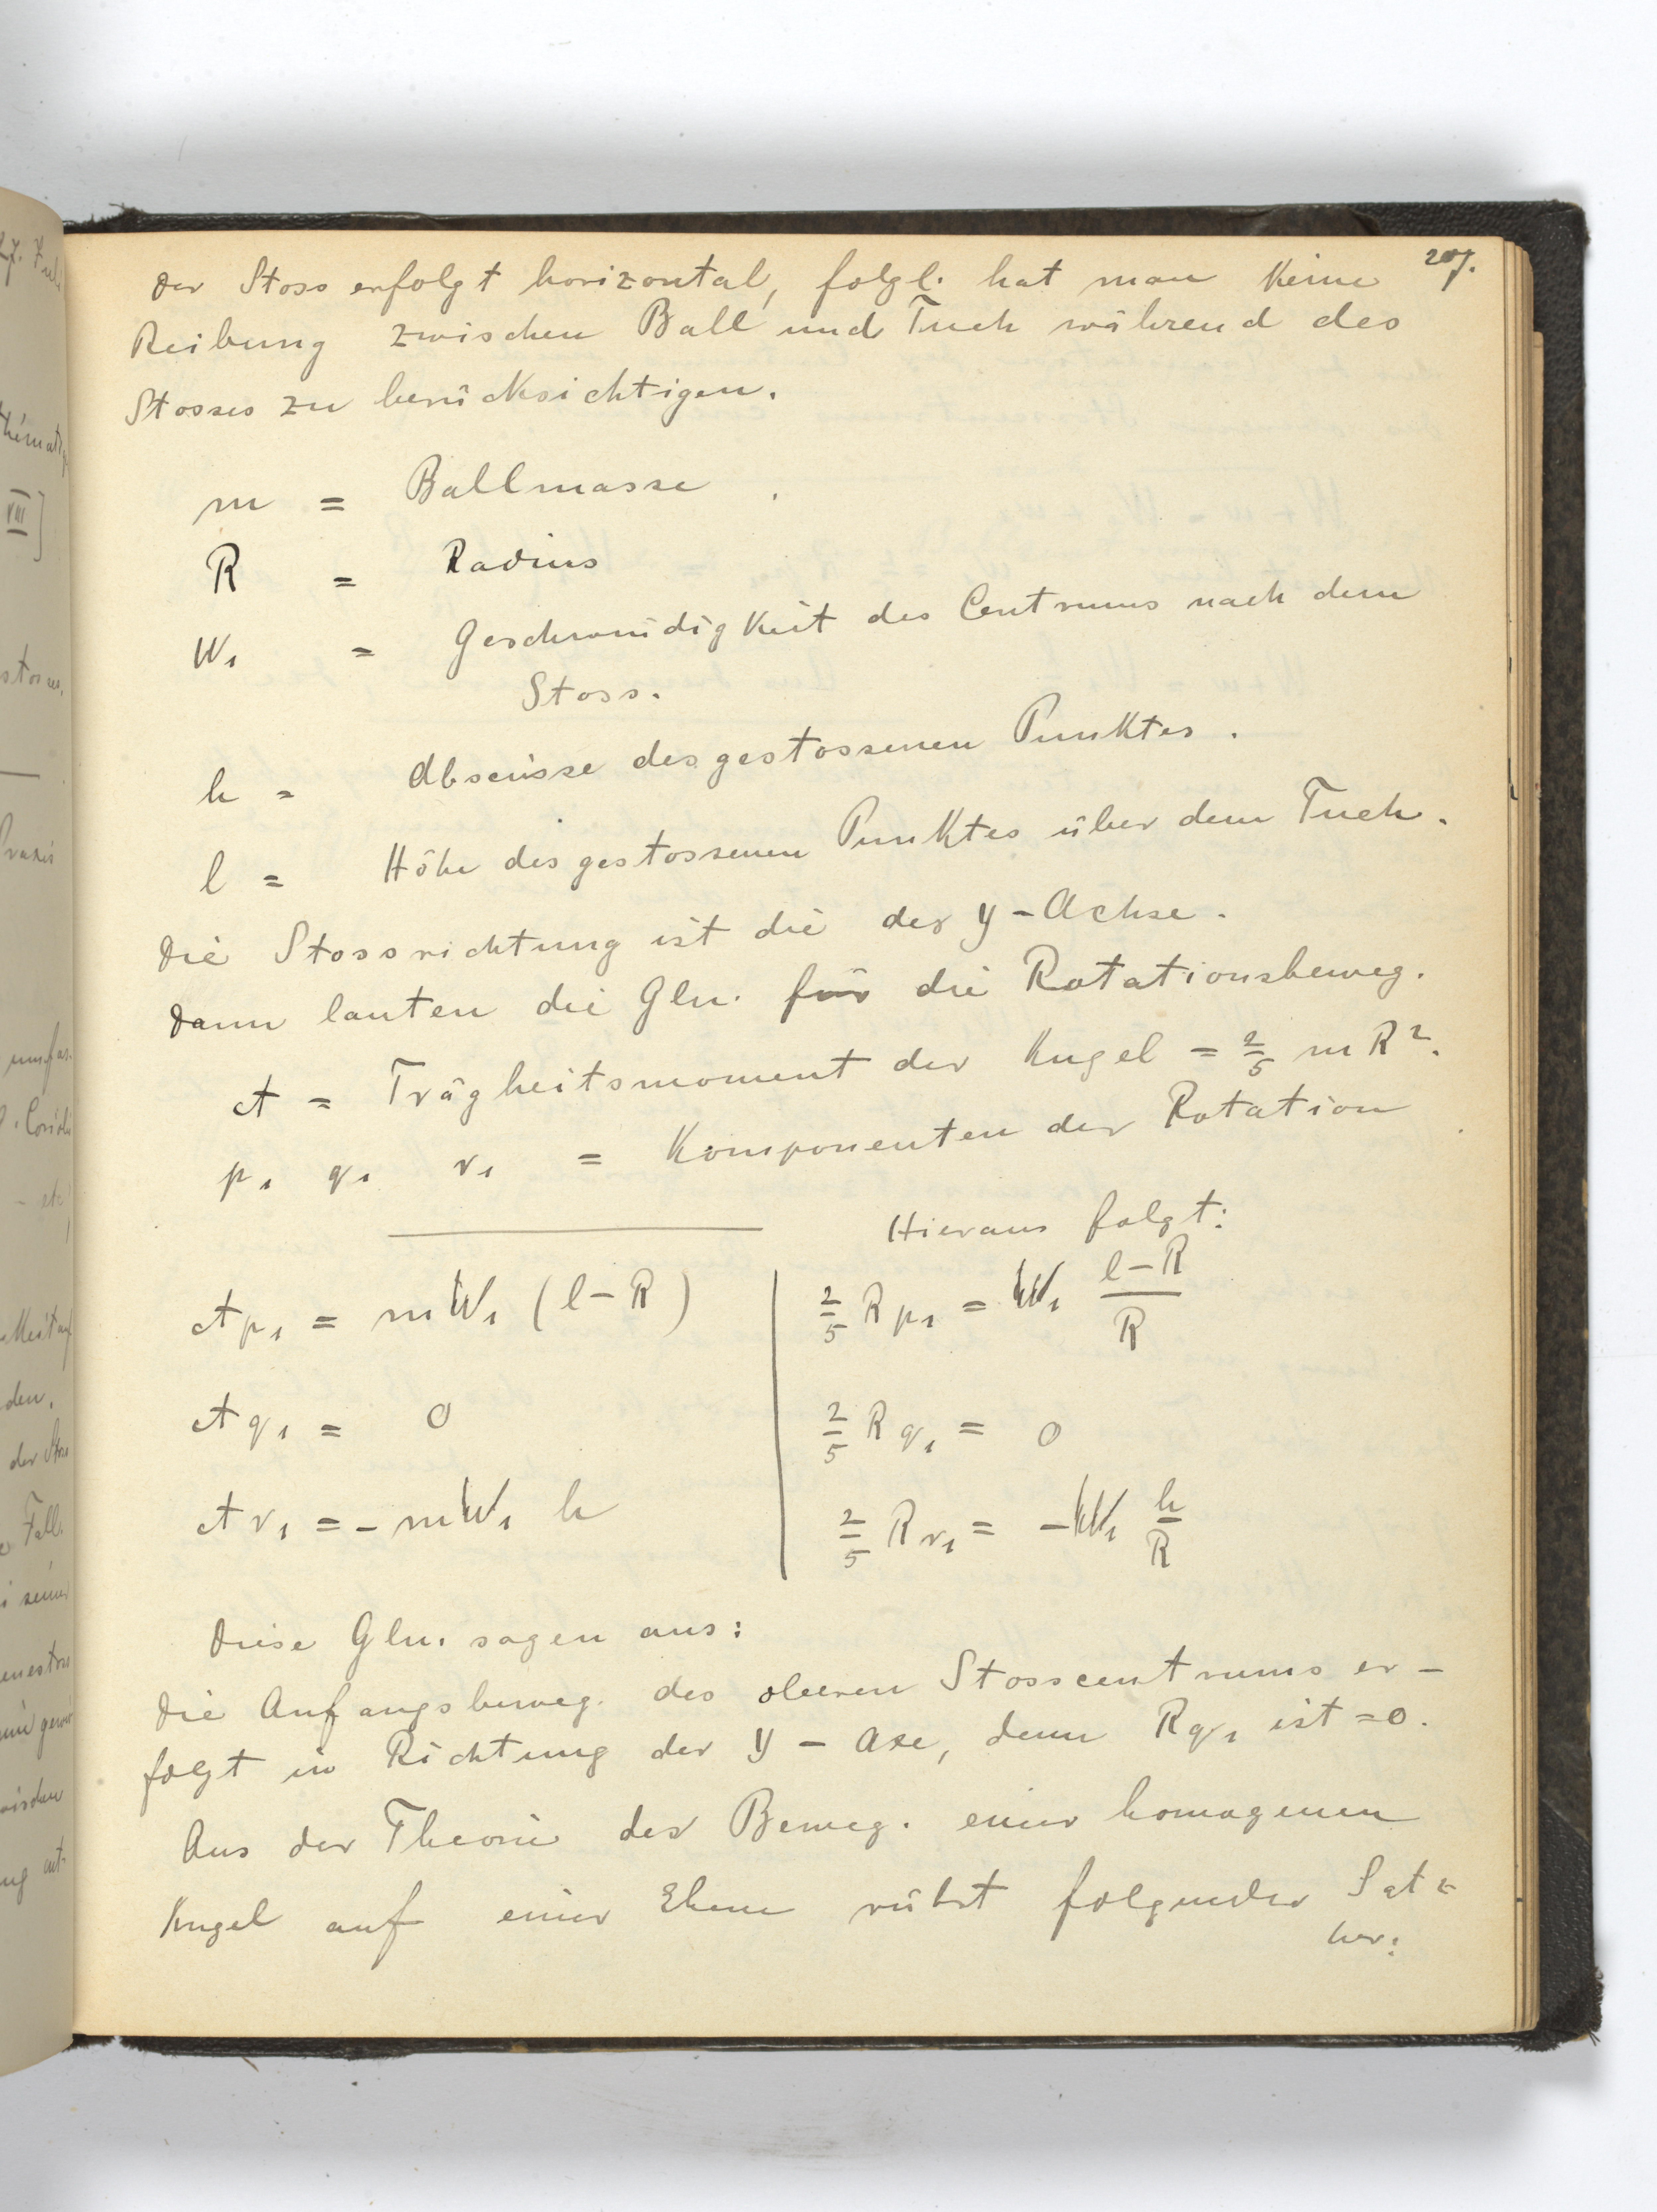 207.
Der Stoss erfolgt horizontal, folgl. hat man keine
Reibung zwischen Ball und Tuch während des
Stosses zu berücksichtigen.
m = Ballmasse.
R = Radius
W₁ = Geschwindigkeit des Centrums nach dem
Stoss.
h = Abscisse des gestossenen Punktes.
l = Höhe des gestossenen Punktes über dem Tuch.
Die Stossrichtung ist die der y-Achse.
Dann lauten die Gln. für die Rotationsbeweg.
A = Trägheitsmoment der Kugel = 2/5 m R².
p₁ q₁ r₁ = Komponenten der Rotation
Hieraus folgt:
A p₁ = m W₁ (l-R) | 2/5 R p₁ = W₁ (l-R)/R
A q₁ = 0 | 2/5 R q₁ = 0
A r₁ = - m W₁ h | 2/5 R r₁ = - W₁ h/R
Diese Gln. sagen aus:
Die Anfangsbeweg. des oberen Stosscentrums er-
folgt in Richtung der y-Axe, denn R q₁ ist = 0.
Aus der Theorie der Beweg. einer homogenen
Kugel auf einer Ebene rührt folgender Satz
her: